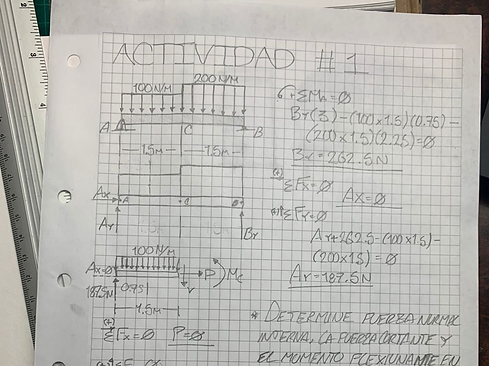 ACTIVIDAD #1
100 N/M
200 N/M
A
C
B
1.5M
1.5M
Ax
A
C
B
Ay
By
100 N/M
Ax=Ø
187.5N
0.75
P
Mc
V
1.5M
(+)
ΣFx=Ø P=Ø
ΣMA=Ø
By(3)-(100x1.5)(0.75)-
(200x1.5)(2.25)=Ø
By=262.5N
(+)
ΣFx=Ø Ax=Ø
(+)↑ΣFy=Ø
Ay+262.5-(100x1.5)-
(200x1.5)=Ø
Ay=187.5N
* DETERMINE FUERZA NORMAL
INTERNA, LA FUERZA CORTANTE Y
EL MOMENTO FLEXIONANTE EN